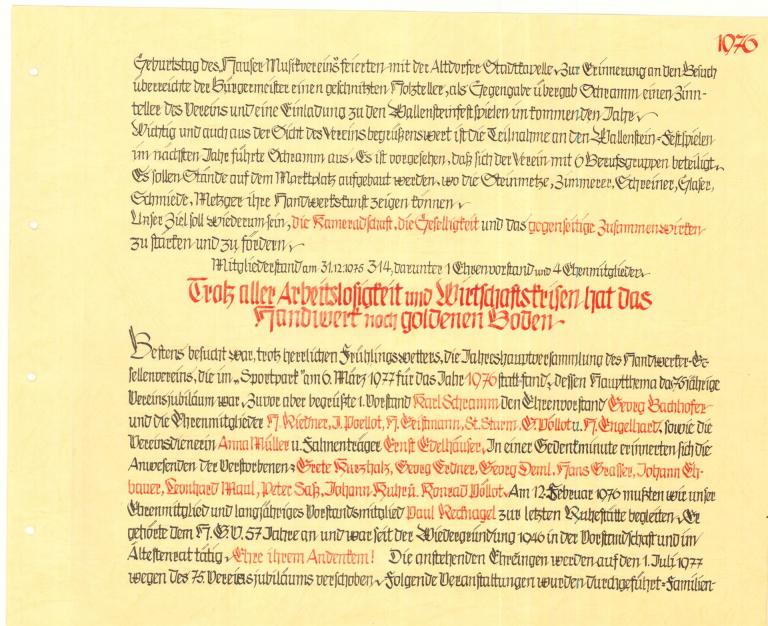 1976
Geburtstag des Hauser Musikvereins feierten mit der Altdorfer Stadtkapelle. Zur Erinnerung an den Besuch
überreichte der Bürgermeister einen geschnitzten Holzteller, als Gegengabe übergab Schramm einen Zinn-
teller des Vereins und eine Einladung zu den Wallensteinfestspielen im kommenden Jahr.
Wichtig und auch aus der Sicht des Vereins begrüßenswert ist die Teilnahme an den Wallenstein-Festspielen
im nächsten Jahr führte Schramm aus. Es ist vorgesehen, daß sich der Verein mit 6 Berufsgruppen beteiligt.
Es sollen Stände auf dem Marktplatz aufgebaut werden, wo die Steinmetze, Zimmerer, Schreiner, Glaser,
Schmiede, Metzger ihre Handwerkskunst zeigen können.
Unser Ziel soll wiederum sein, die Kameradschaft, die Geselligkeit und das gegenseitige Zusammenwirken
zu stärken und zu fördern.
Mitgliederstand am 31.12.1975 314, darunter 1 Ehrenvorstand und 4 Ehrenmitglieder.
Trotz aller Arbeitslosigkeit und Wirtschaftskrisen hat das
Handwerk noch goldenen Boden
Bestens besucht war, trotz herrlichen Frühlingswetters, die Jahreshauptversammlung des Handwerker-Ge-
sellenvereins, die im „Sportpark" am 6. März 1977 für das Jahr 1976 statt fand, dessen Hauptthema das 75jährige
Vereinsjubiläum war. Zuvor aber begrüßte 1. Vorstand Karl Schramm den Ehrenvorstand Georg Bachhofer
und die Ehrenmitglieder H. Riedner, J. Poellot, H. Geistmann, St. Sturm, G. Wöllot u. H. Engelhard, sowie die
Vereinsdienerin Anna Müller u. Fahnenträger Ernst Edelhäuser. In einer Gedenkminute erinnerten sich die
Anwesenden der Verstorbenen: Grete Kurzhalz, Georg Erdner, Georg Deml, Hans Grasser, Johann Eh-
bauer, Leonhard Maul, Peter Saß, Johann Kuhr u. Konrad Döllot. Am 12. Februar 1976 mußten wir unser
Ehrenmitglied und langjähriges Vorstandsmitglied Paul Recknagel zur letzten Ruhestätte begleiten. Er
gehörte dem H.G.V. 57 Jahre an und war seit der Wiedergründung 1946 in der Vorstandschaft und im
Ältestenrat tätig. Ehre ihrem Andenken! Die anstehenden Ehrungen werden auf den 1. Juli 1977
wegen des 75. Vereinsjubiläums verschoben. Folgende Veranstaltungen wurden durchgeführt: Familien-